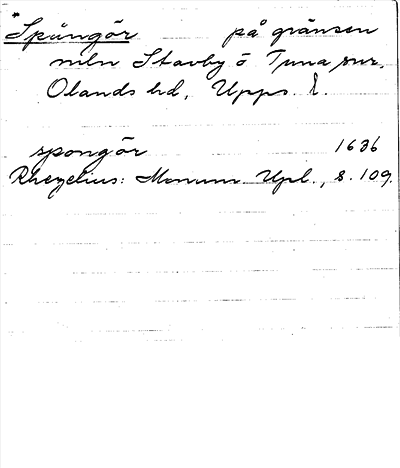 *Spångör på gränsen
mln Stavby o Tuna snr,
Olands hd, Upps. l.
spongör 1636
Rhezelius: Monum Upl., s. 109.